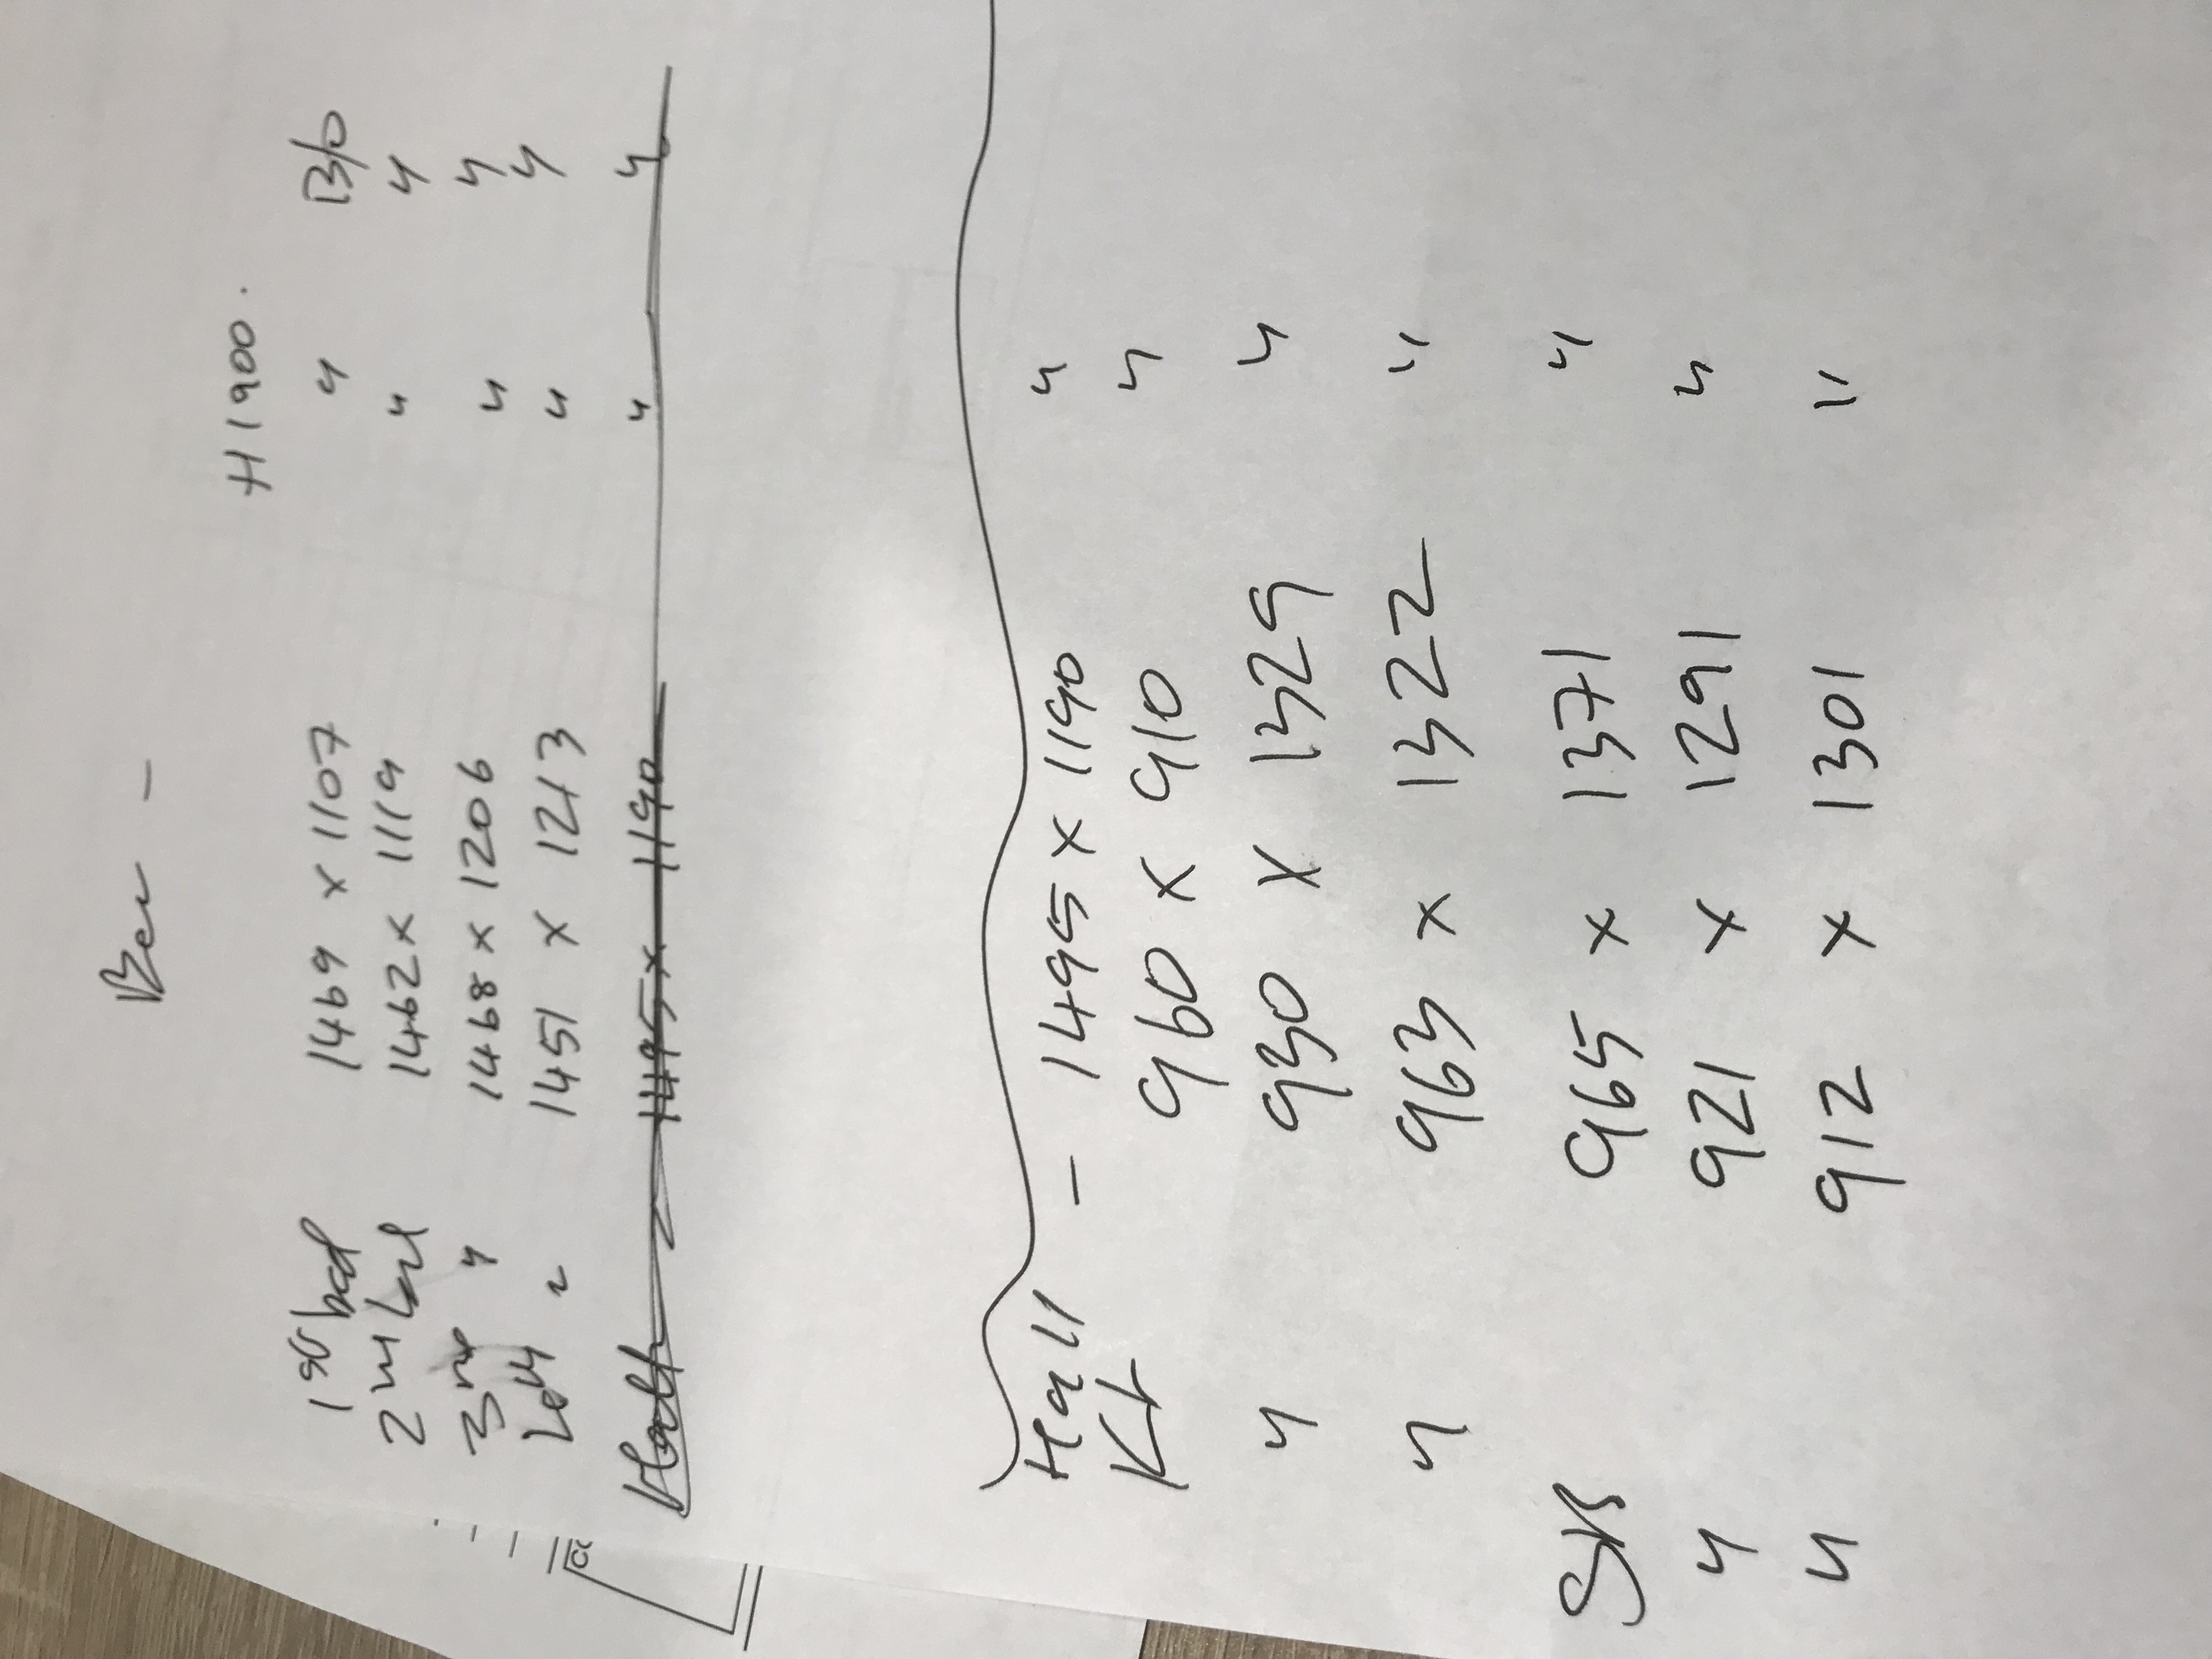 Ben -
H 1900.
1st bed 1469 x 1107 " B/O
2nd bed 1462 x 1119 " "
3rd " 1468 x 1206 " "
4th " 1451 x 1213 " "
1495 x 1190 " "
Hall - 1495 x 1190 "
Kt 960 x 910 "
" 930 x 1329 "
" 963 x 1322 "
965 x 1371 "
" 921 x 1291 "
" 912 x 1301 "